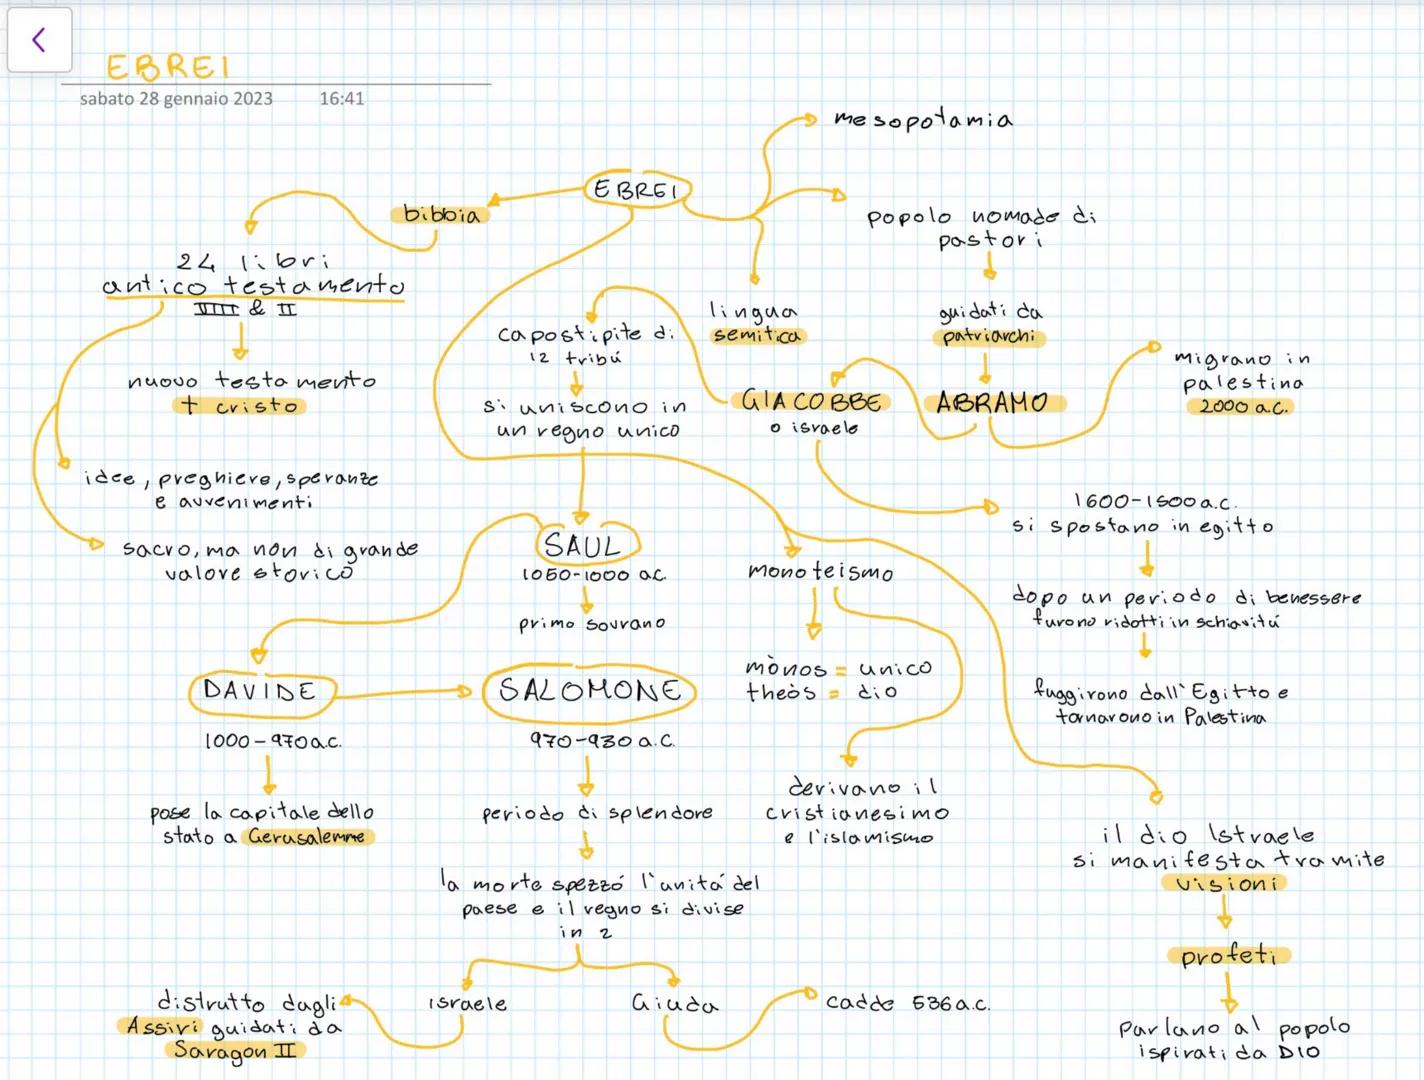 EBREI
sabato 28 gennaio 2023 16:41
EBREI
mesopotamia
popolo nomade di
pastori
guidati da
patriarchi
ABRAMO
migrano in
palestina
2000 a.c.
GIACOBBE
o israele
1600-1500 a.c.
si spostano in egitto
dopo un periodo di benessere
furono ridotti in schiavitú
fuggirono dall'Egitto e
tornarono in Palestina
lingua
semitica
bibbia
24 libri
antico testamento
IIII & II
nuovo testamento
+ cristo
idee, preghiere, speranze
e avvenimenti
sacro, ma non di grande
valore storico
capostipite di
12 tribú
si uniscono in
un regno unico
SAUL
1050-1000 a.c.
primo sovrano
DAVIDE
1000-970 a.c.
pose la capitale dello
stato a Gerusalemme
SALOMONE
970-930 a.c.
periodo di splendore
la morte spezzó l'unitá del
paese e il regno si divise
in 2
israele
distrutto dagli
Assiri guidati da
Saragon II
Giuda
cadde 586 a.c.
monoteismo
mònos = unico
theòs = dio
derivano il
cristianesimo
e l'islamismo
il dio Istraele
si manifesta tramite
visioni
profeti
parlano al popolo
ispirati da DIO